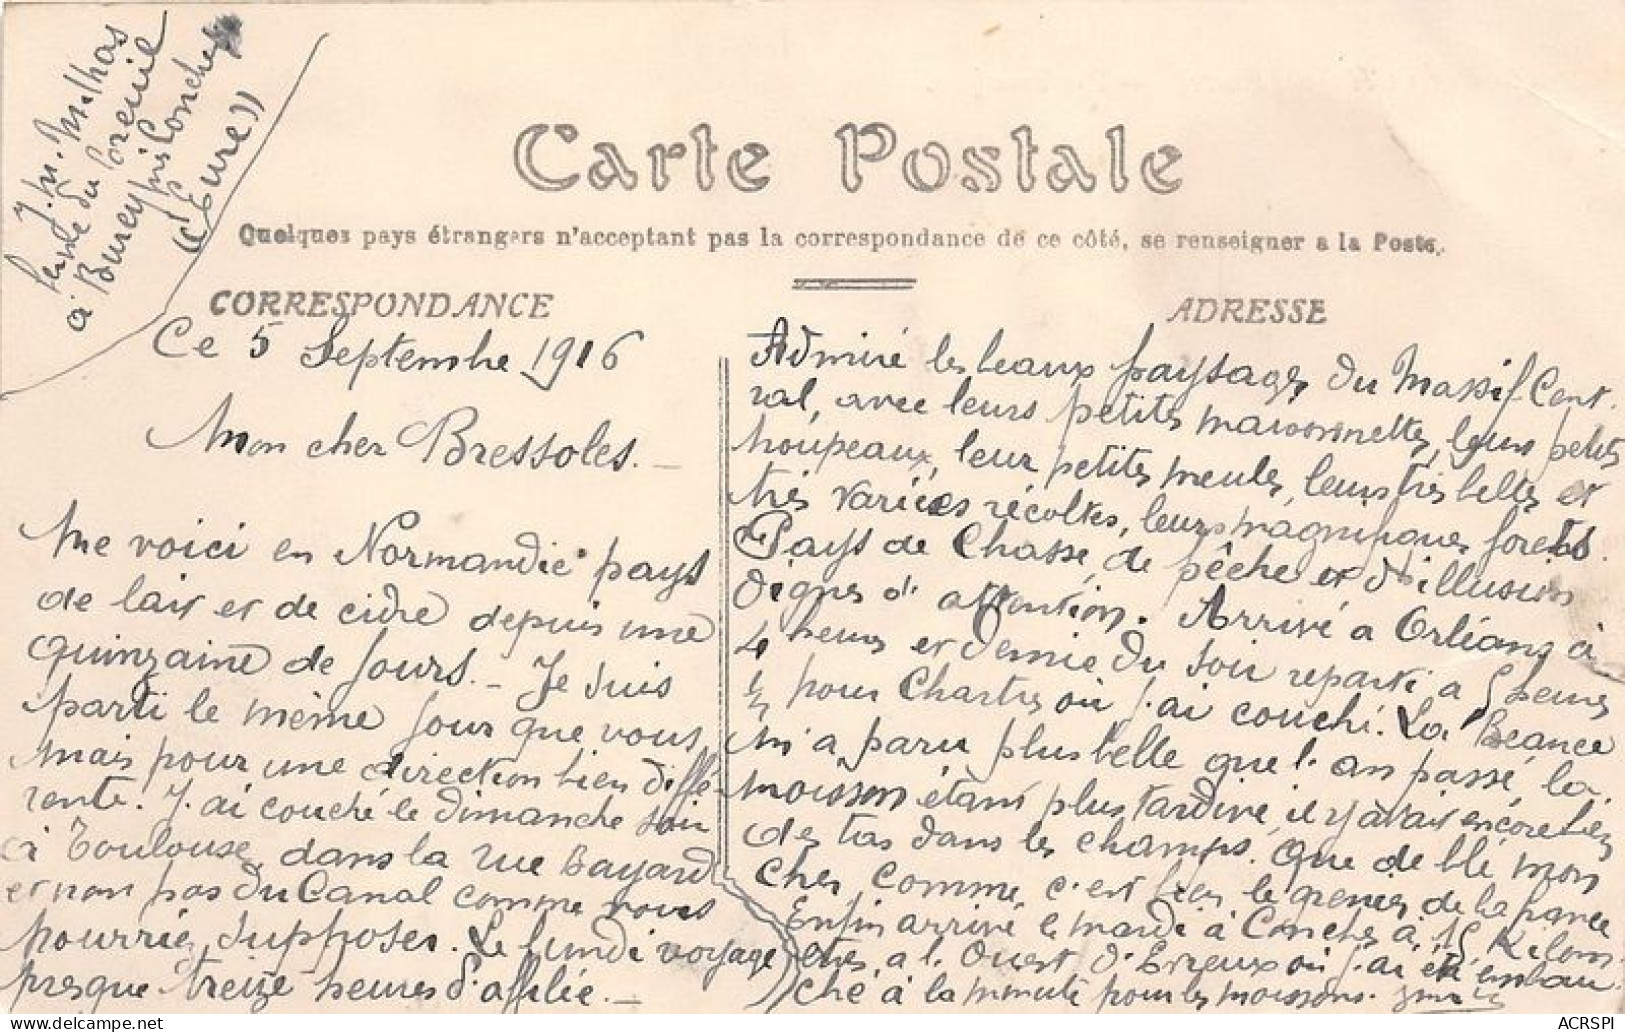 J. M. Milhas
ferme du Coreuil
à Bourey près Conches
(Eure)
Carte Postale
Quelques pays étrangers n'acceptant pas la correspondance de ce côté, se renseigner a la Poste.
CORRESPONDANCE
Ce 5 Septembre 1916
Mon cher Bressoles. —
Me voici en Normandie pays
de lait et de cidre depuis une
quinzaine de jours. — Je suis
parti le même jour que vous
mais pour une direction bien diffé-
rente. J'ai couché le dimanche soir
à Toulouse, dans la rue Bayard
et non pas du Canal comme vous
pourriez supposer. Le lundi voyage
presque treize heures d'affilée. —
ADRESSE
Admiré les beaux paysages du Massif Cent
ral, avec leurs petites maisonnettes, leurs petits
houpeaux, leur petites meules, leurs très belles et
très variées récoltes, leurs magnifiques forets.
Pays de Chasse, de pêche et d'illusion
dignes d'attention. Arrivé a Orléans à
4 heures et demie du soir reparti a 5 heures
½ pour Chartres où j'ai couché. La Beauce
m'a paru plus belle que l'an passé, la
moisson étant plus tardive, il y avait encore bien
des tas dans les champs. Que de blé mon
cher, comme c'est bien le grenier de la france
Enfin arrivé le mardi à Conches à 15 Kilom-
etres a l'Ouest d'Evreux où j'ai été embau
ché à la minute pour les moissons.
ACRSPI